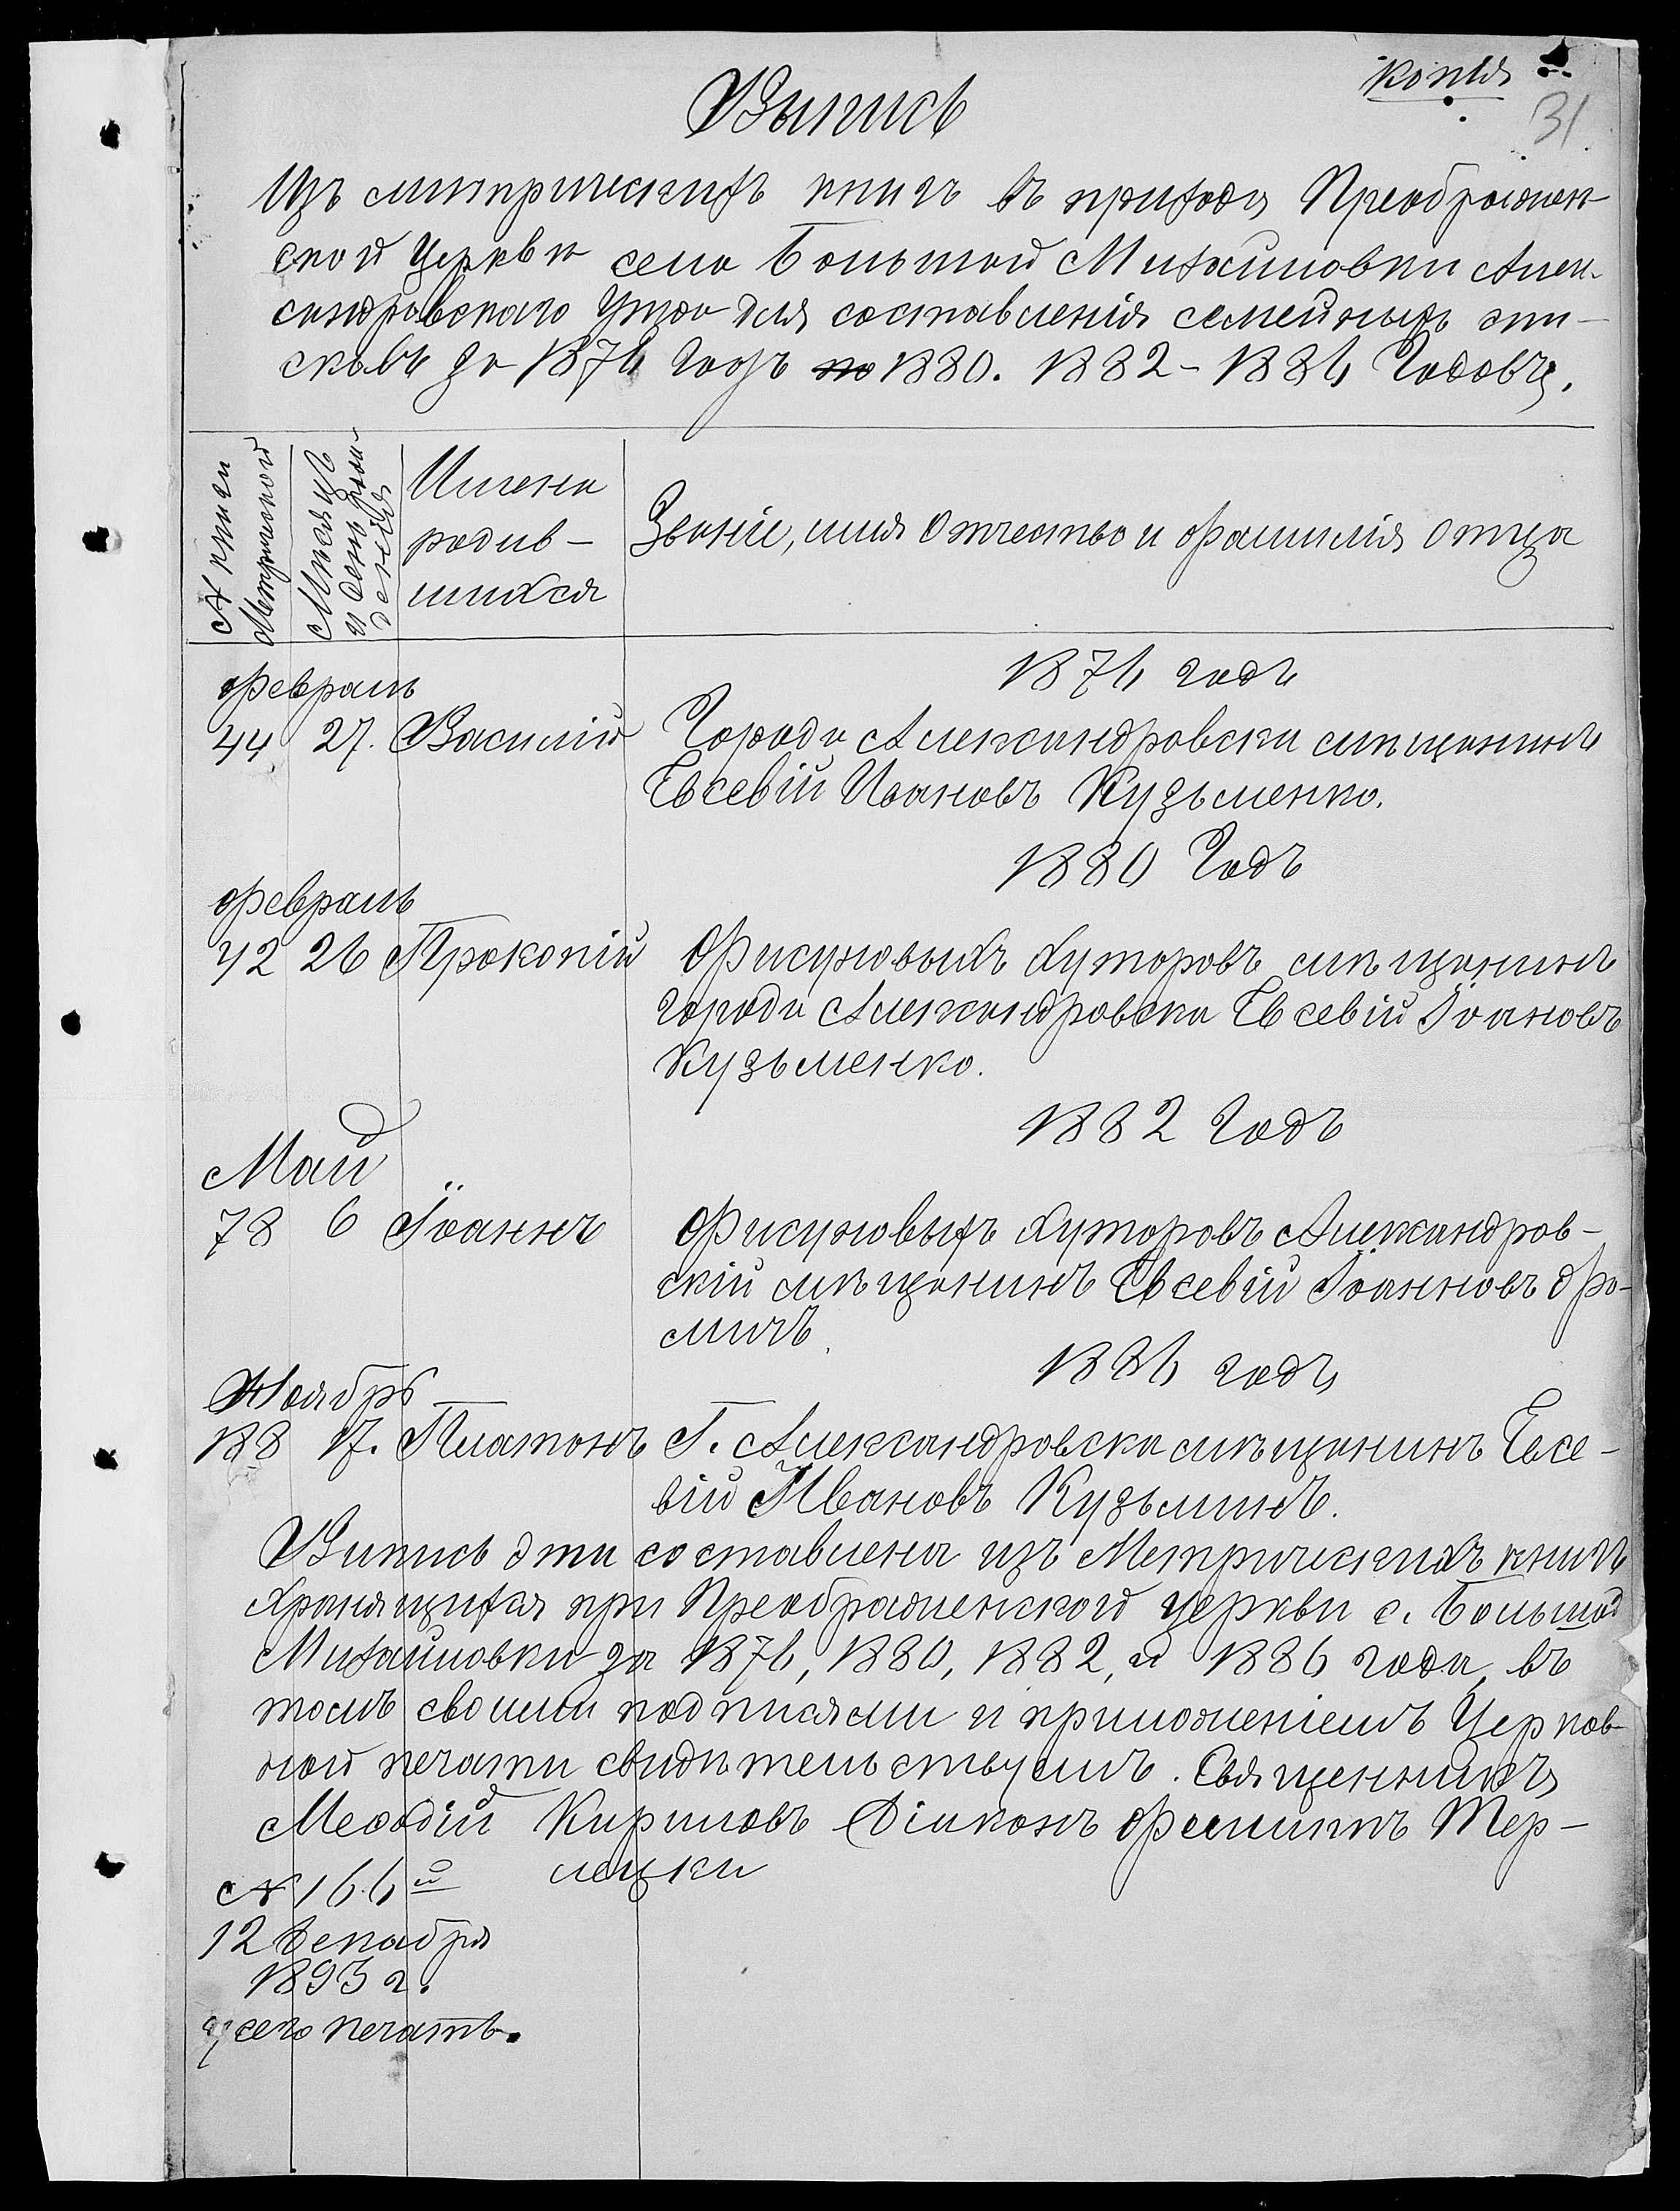 Копія
31
Выпись
Изъ метрическихъ книгъ въ приходѣ Преображен-
ской Церкви села Большой Михайловки Алек-
сандровскаго Уѣзда для составленія семейныхъ спи-
сковъ за 1876 годъ 1880. 1882 - 1886 Годовъ.
№ книги
Метрической
Мѣсяцъ
и день рож-
денія
Имена
родив-
шихся
Званіе, имя Отчество и фамилія Отца
1876 годъ
Февраль
44 27. Василій Города Александровска мѣщанинъ
Евсевій Ивановъ Кузьменко.
1880 Годъ
Февраль
42 26 Прокопій Фисуновыхъ Хуторовъ мѣщанинъ
города Александровска Евсевій Іоановъ
Кузьменко.
1882 Годъ
Май
78 6 Іоаннъ Фисуновыхъ Хуторовъ Александров-
скій мѣщанинъ Евсевій Іоанновъ
1886 годъ
Ноябрь
188 17. Платонъ Г. Александровска мѣщанинъ Евсе-
вій Ивановъ Кузьминъ.
Выпись эта составлена изъ Метрическихъ книгъ
хранящихся при Преображенской церкви с. Большой
Михайловки за 1876, 1880, 1882, и 1886 года, въ
томъ своими подписями и приложеніемъ Церков-
ной печати свидѣтельствуемъ. Священникъ
Меѳодій Кириловъ Діаконъ Тер-
лецки
№ 166й
12 декабря
1893 г.
у сего печать.